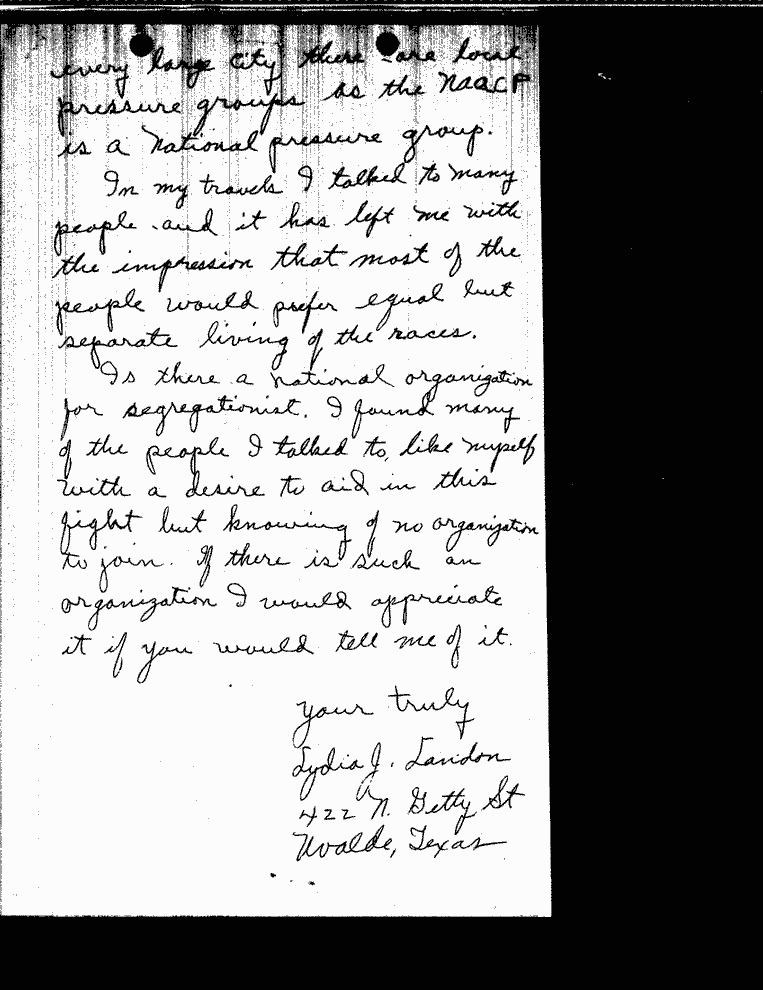 every large city there are local
pressure groups as the NAACP
is a National pressure group.
In my travels I talked to many
people and it has left me with
the impression that most of the
people would prefer equal but
separate living of the races.
Is there a national organization
for segregationist. I found many
of the people I talked to, like myself
with a desire to aid in this
fight but knowing of no organization
to join. If there is such an
organization I would appreciate
it if you would tell me of it.
Your truly
Lydia J. Landon
422 N. Getty St
Uvalde, Texas